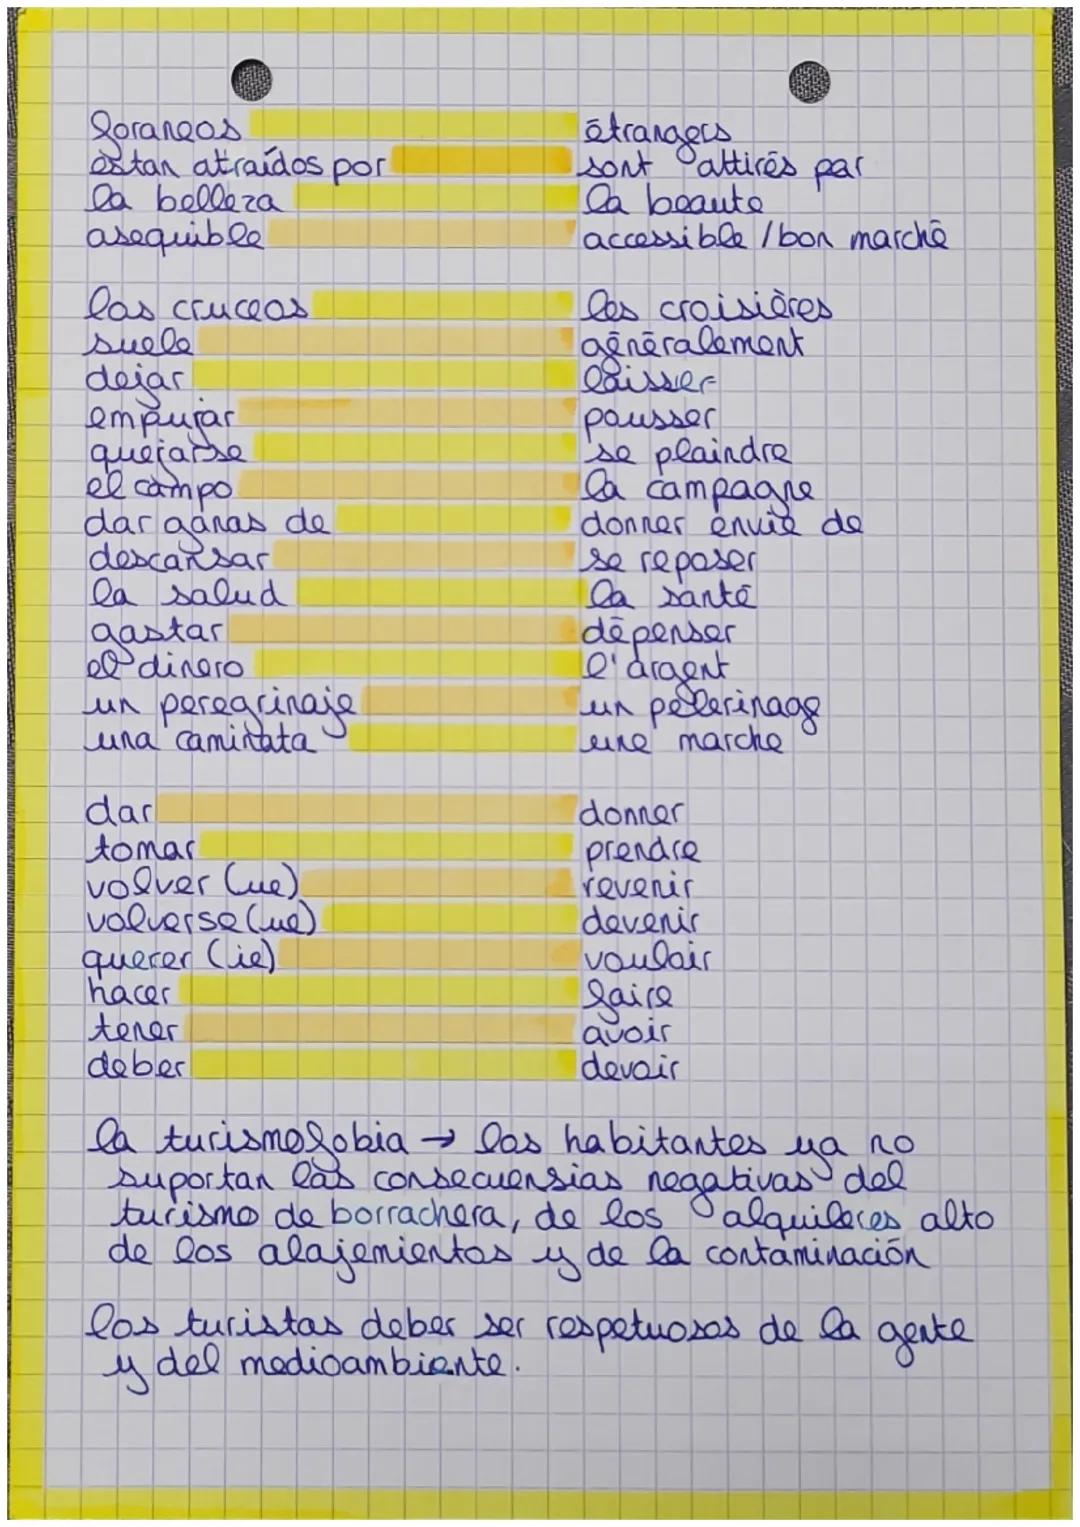 foraneos étrangers
estan atraídos por sont attirés par
la belleza la beaute
asequible accessible / bon marché
los cruceos les croisières
suele généralement
dejar laisser
empujar pousser
quejarse se plaindre
el campo la campagne
dar ganas de donner envie de
descansar se reposer
la salud la santé
gastar dépenser
el dinero l'argent
un peregrinaje un pelerinage
una caminata une marche
dar donner
tomar prendre
volver (ue) revenir
volverse (ue) devenir
querer (ie) vouloir
hacer faire
tener avoir
deber devoir
la turismofobia → los habitantes ya no
suportan las consecuensias negativas del
turismo de borrachera, de los alquileres alto
de los alojemientos y de la contaminación
los turistas deber ser respetuosos de la gente
y del medioambiente.